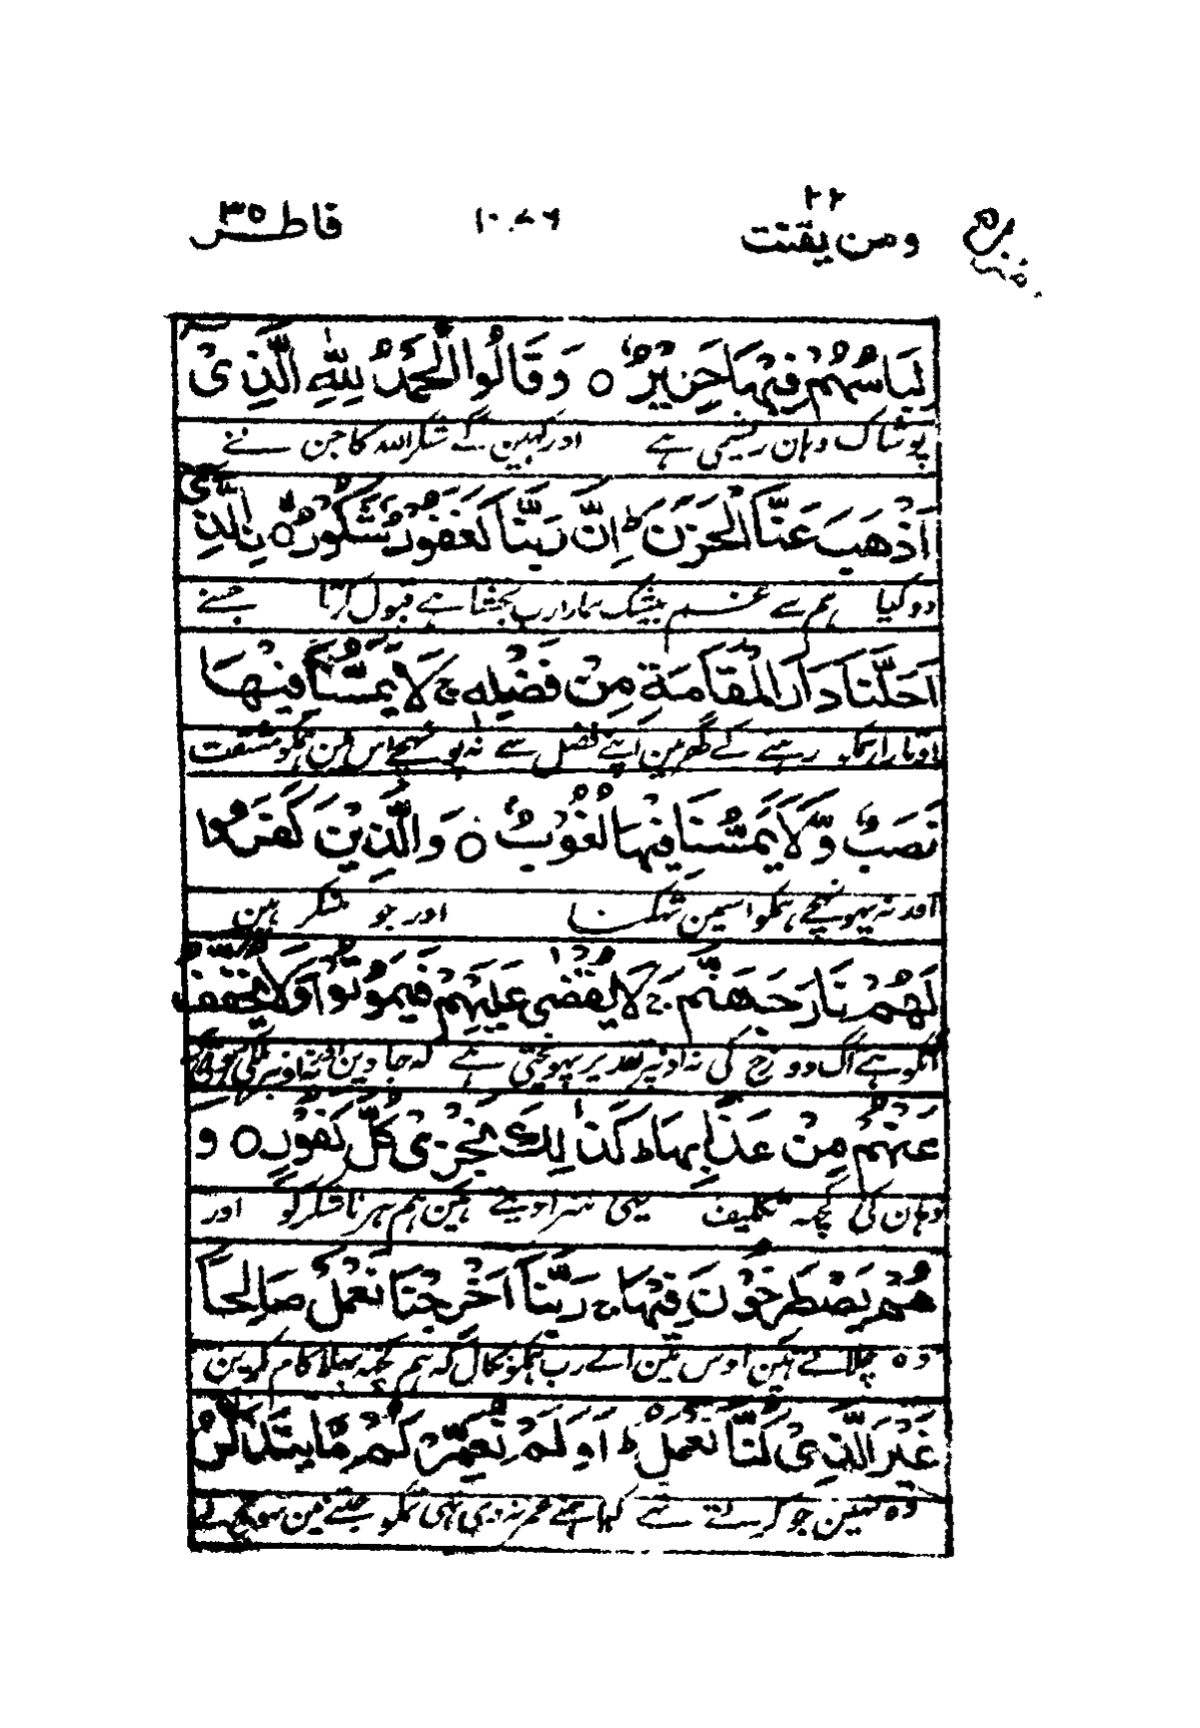 ۲۲
ومن یقنت ۱۰۷۶ فاطر ۳۵
لِبَاسُهُمْ فِیْهَا حَرِیْرٌ ۝ وَقَالُوا الْحَمْدُ لِلّٰهِ الَّذِیْ
پوشاک وہان ریشمی ہے اور کہین گے شکر اللہ کا جن نے
اَذْهَبَ عَنَّا الْحَزَنَ ؕ اِنَّ رَبَّنَا لَغَفُوْرٌ شَكُوْرُ ۝ ِۨالَّذِیْۤ
دور کیا ہم سے غم بیشک ہمارا رب بخشتا ہے قبول کرتا جسنے
اَحَلَّنَا دَارَ الْمُقَامَةِ مِنْ فَضْلِهٖ ج لَا یَمَسُّنَا فِیْهَا
اوتارا ہمکو رہنے کے گھر مین اپنے فضل سے نہ پہونچے اس مین ہمکو مشقت
نَصَبٌ وَّلَا یَمَسُّنَا فِیْهَا لُغُوْبٌ ۝ وَالَّذِیْنَ كَفَرُوْا
اور نہ پہونچے ہمکو اسمین تھکنا اور جو منکر ہین
لَهُمْ نَارُ جَهَنَّمَ ج لَا یُقْضٰی عَلَیْهِمْ فَیَمُوْتُوْا وَلَا یُخَفَّفُ
انکو ہے آگ دوزخ کی نہ اونپر تقدیر پہونچتی ہے کہ مر جاوین اور نہ اونپر ہلکی ہوتی
عَنْهُمْ مِنْ عَذَابِهَا ؕ كَذٰلِكَ نَجْزِیْ كُلَّ كَفُوْرٍ ۝ وَ
وہان کی کچھ تکلیف یہی سزا دیتے ہین ہم ہر ناشکر کو اور
هُمْ یَصْطَرِخُوْنَ فِیْهَا ج رَبَّنَا اَخْرِجْنَا نَعْمَلْ صَالِحًا
وہ چلاتے ہین اوس مین اے رب ہمکو نکال کہ ہم کچھ بھلا کام کرین
غَیْرَ الَّذِیْ كُنَّا نَعْمَلُ ؕ اَوَلَمْ نُعَمِّرْكُمْ مَّا یَتَذَكَّرُ
وہ نہین جو کرتے تھے کیا ہمنے عمر نہ دی تھی تمکو جتنے مین سوچ لے